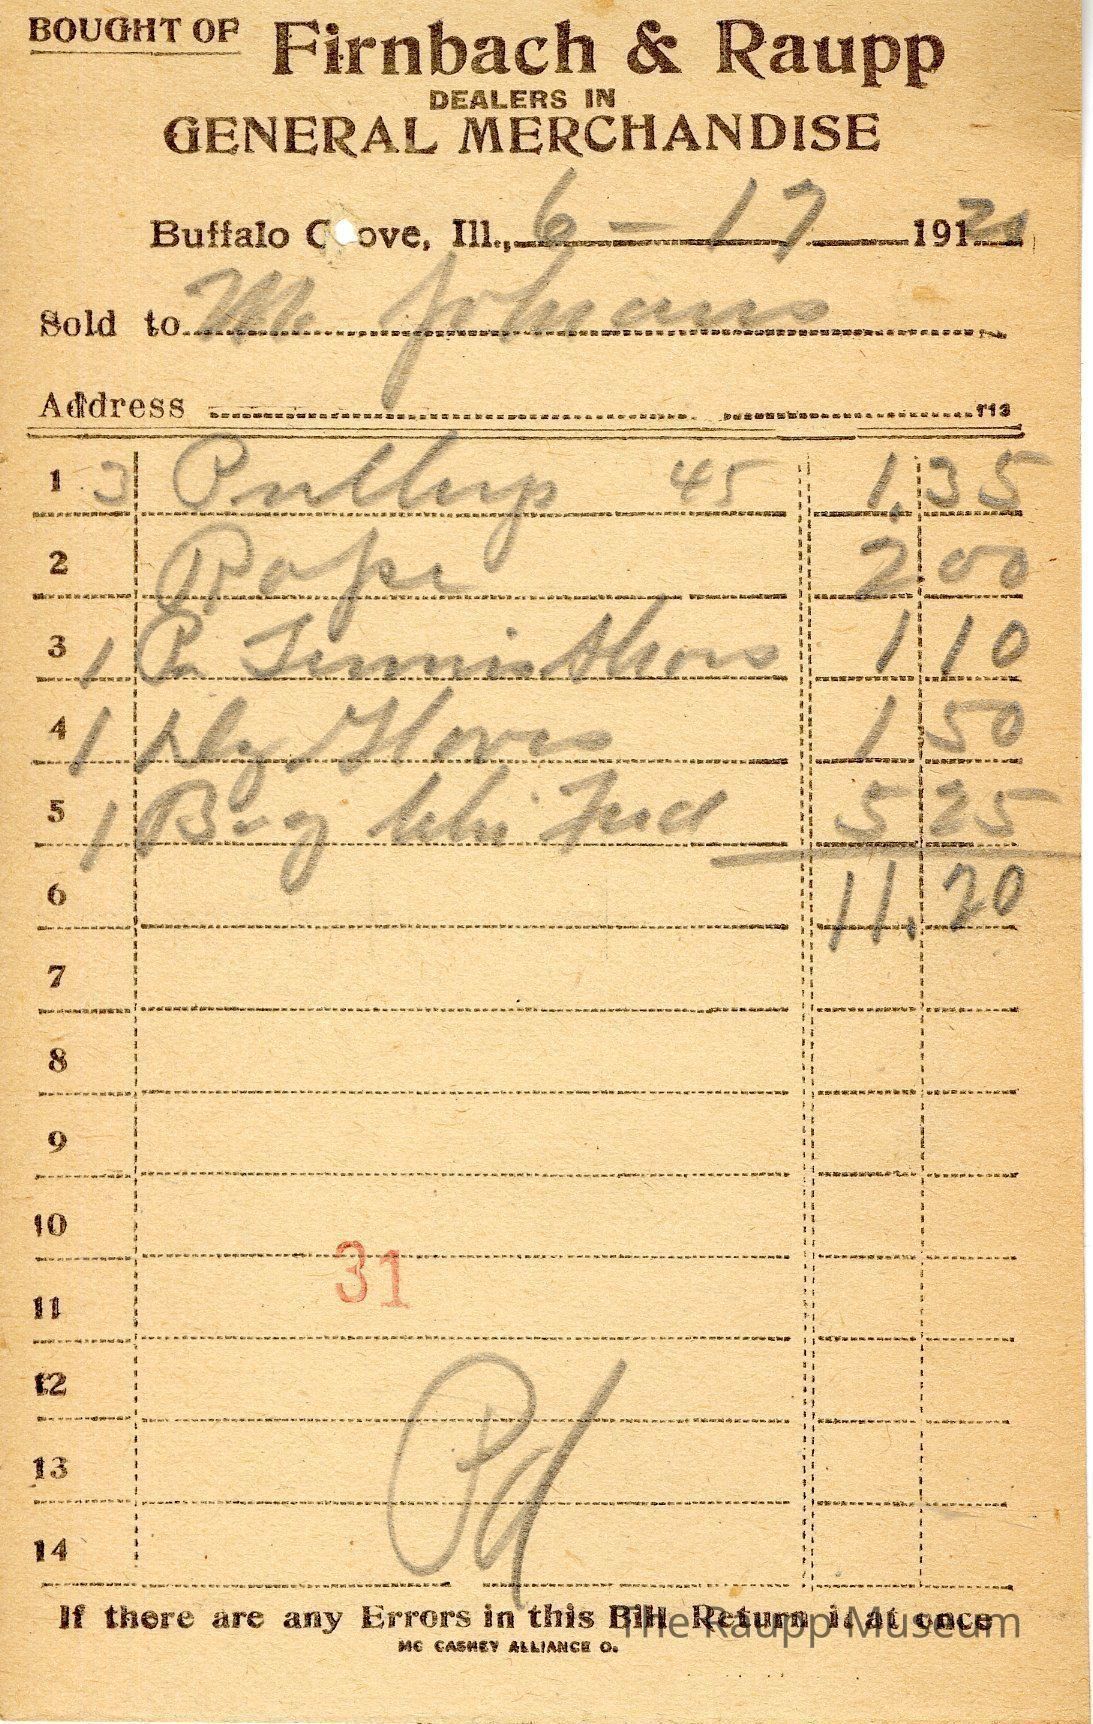 BOUGHT OF Firnbach & Raupp
DEALERS IN
GENERAL MERCHANDISE
Buffalo Grove, Ill., 6-17 1920
Sold to M Johans
Address 113
1 3 Pulleys 45 1.35
2 Rope 2 00
3 1 Pr Tennis Shoes 1 10
4 1 Gloves 1 50
5 1 Bag Chi Feed 5 25
6 11.20
7
8
9
10
31
11
12
Pd
13
14
If there are any Errors in this Bill Return it at once
The Raupp Museum
MC CASKEY ALLIANCE O.